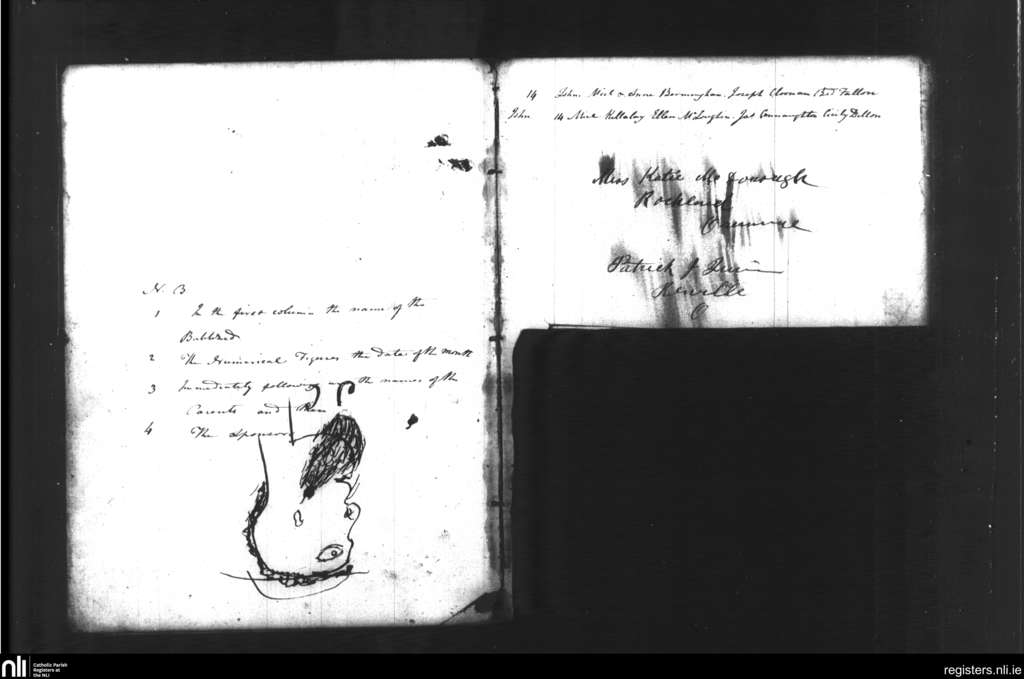 N. B
1 In the first column the name of the
Babtized
2 The Numerical Figures the date of the month
3 Immediately following are the names of the
Parents and then
4 The Sponsors
14 John. Mick & Anne Bermingham. Joseph Cloonan
John 14 Mick Killalay Ellen McLoughlin. Jas Connaughton Cicily Dillon
Miss Katie Mc Donough
Rockland
Patrick J Quinn
nli Catholic Parish
Registers at
the NLI
registers.nli.ie